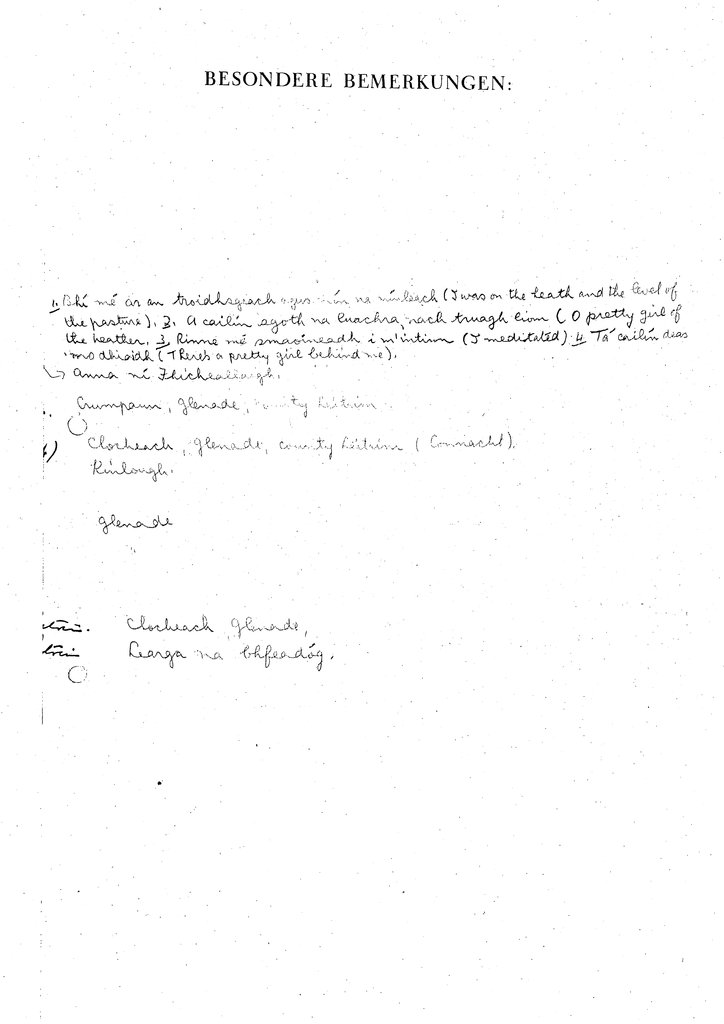 BESONDERE BEMERKUNGEN:
1. Bhí mé ar an troidhsgeach agus mín na mínleach (I was on the heath and the level of
the pasture). 2. A cailín sgoth na luachra, nach truagh liom (O pretty girl of
the heather. 3 Rinne mé smaoineadh i m'intinn (I meditated). 4. Tá cailín deas
mo dhiaidh (There's a pretty girl behind me).
Anna ní
Crumpaun, Glenade, county Leitrim
Clocheach, Glenade, county Leitrim (Connacht).
Kinlough.
Glenade
Clocheach Glenade,
Learga na bhfeadóg.